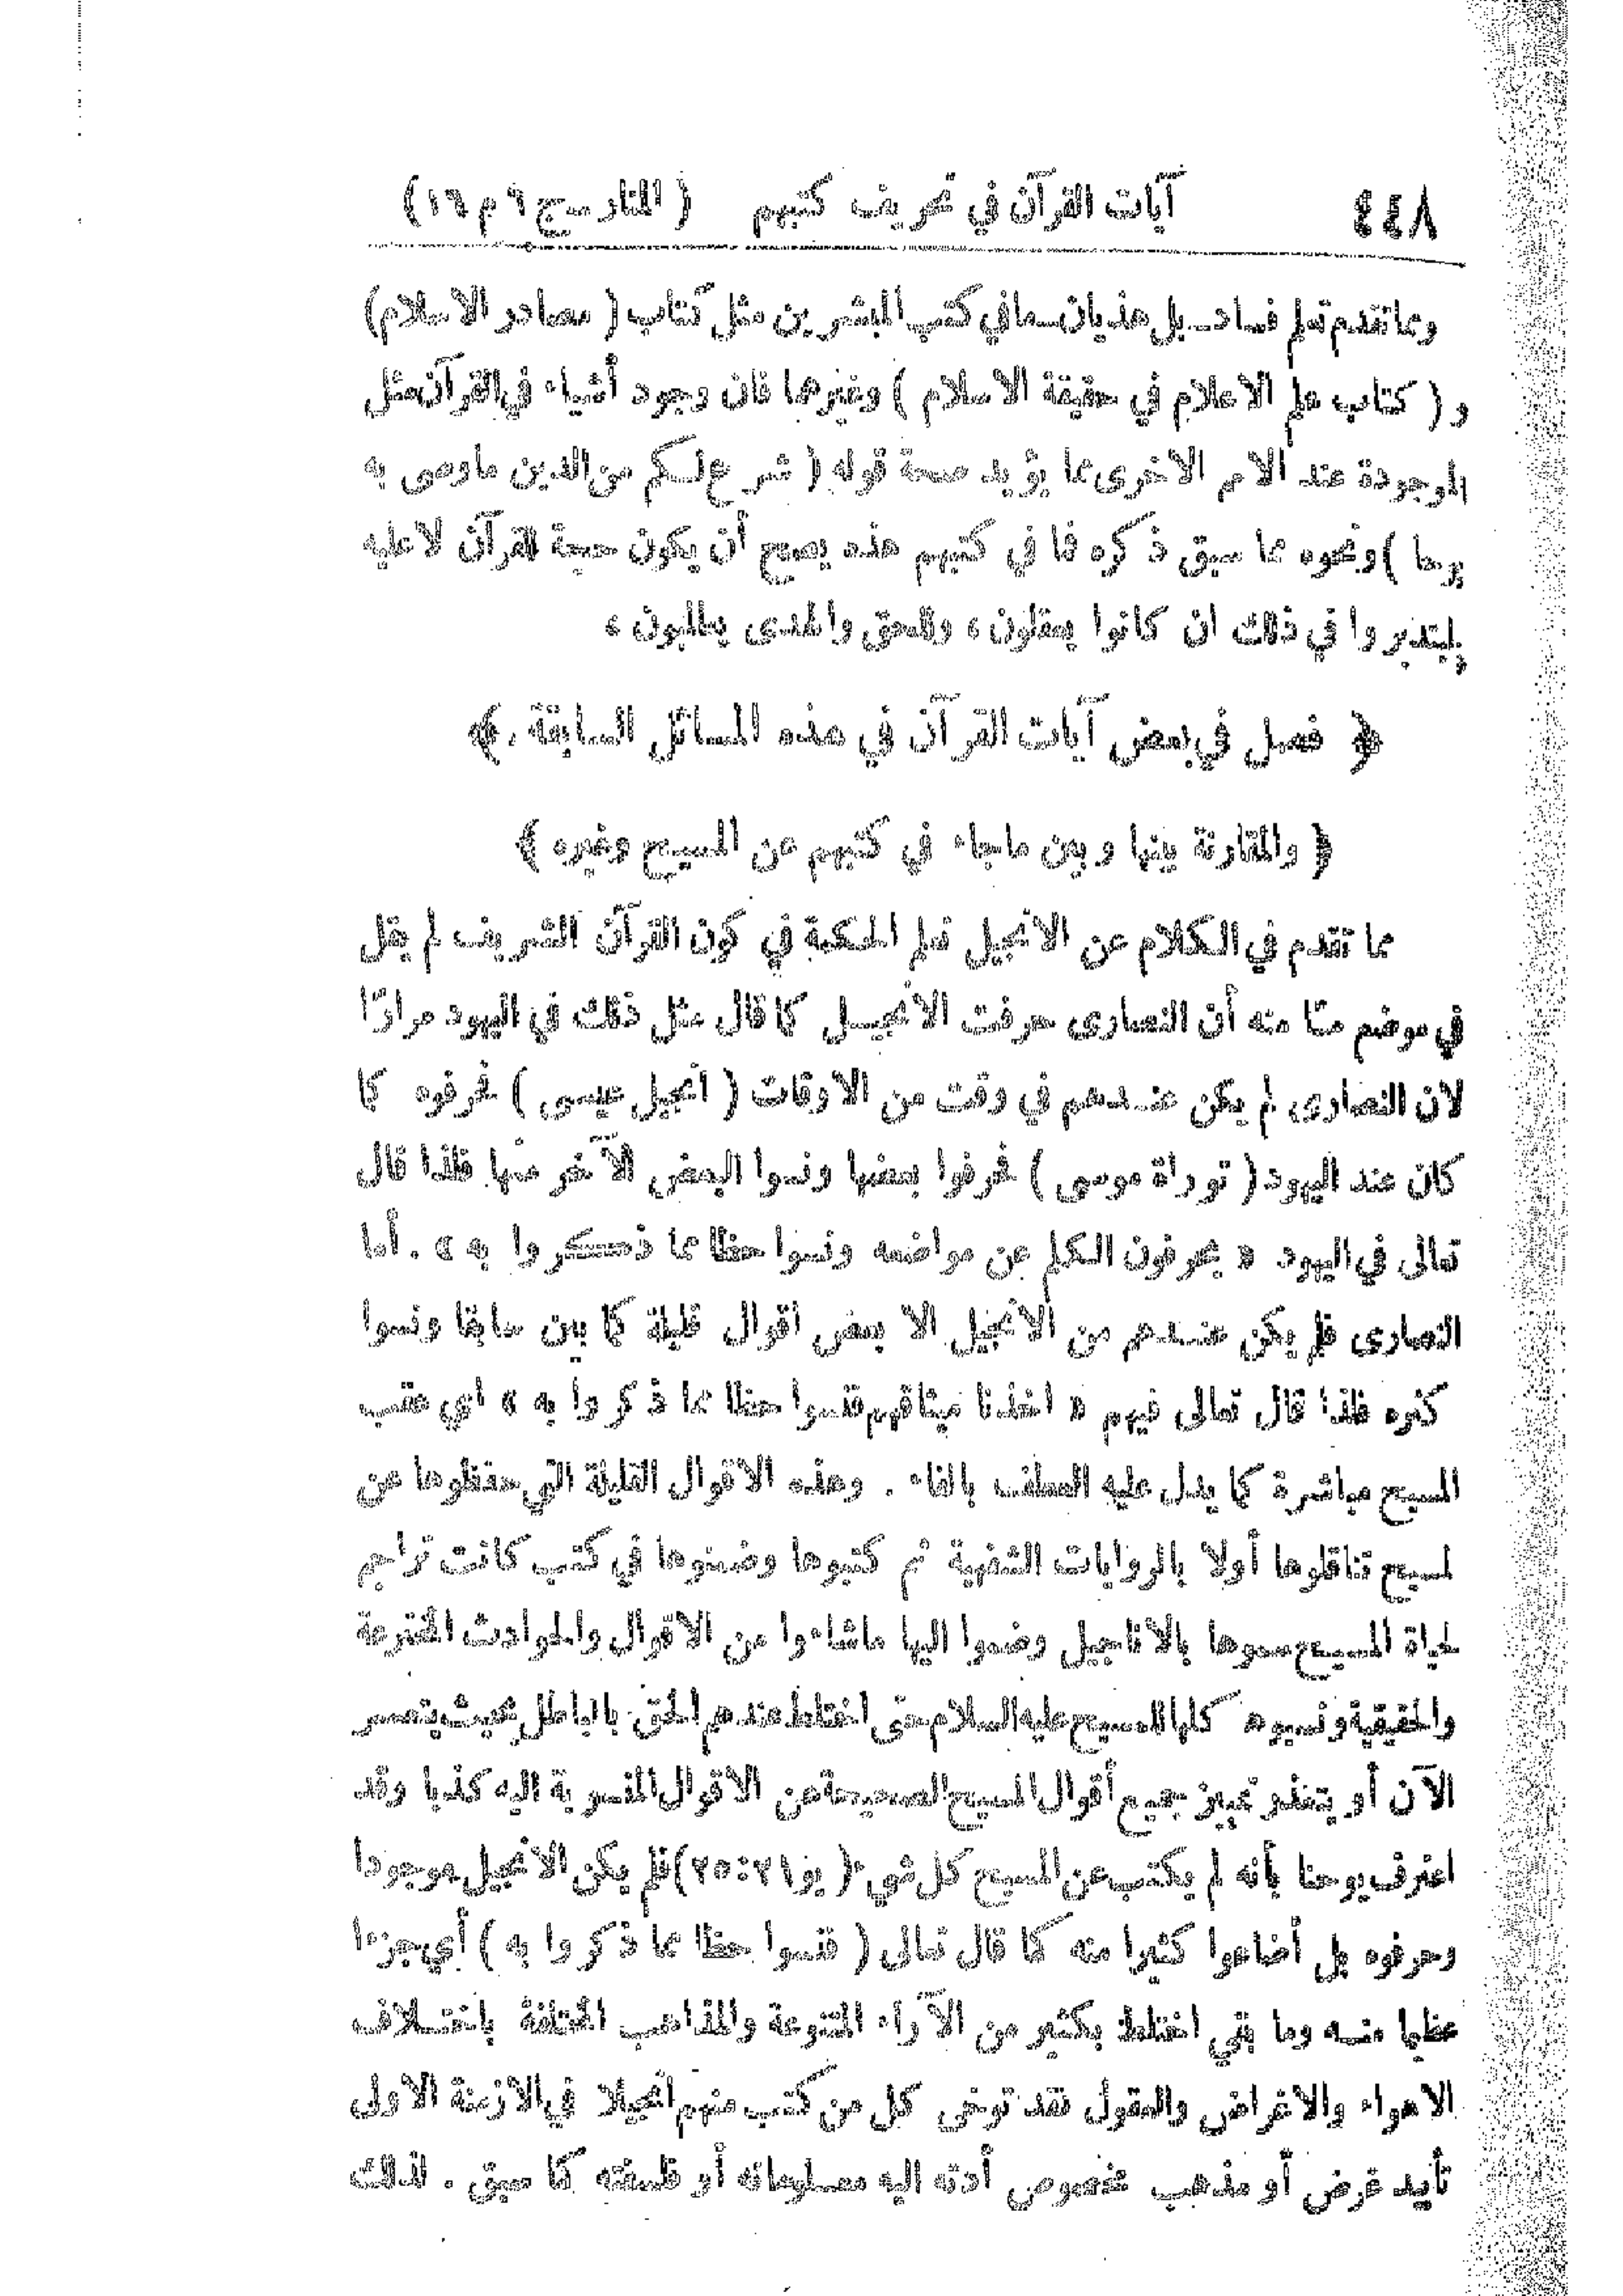 ٤٤٨ آيات القرآن في تحريف كتبهم ( المنار ــ ج ٦ م ١٦ )
ومما تقدم تعلم فساد ــ بل هذيان ــ ما في كتب المبشرين مثل كتاب ( مصادر الاسلام )
و ( كتاب علم الاعلام في حقيقة الاسلام ) وغيرها فان وجود أشياء في القرآن مثل
الموجودة عند الامم الاخرى مما يؤيد صحة قوله ( شرع لكم من الدين ماوصى به
نوحا ) ونحوه مما سبق ذكره فما في كتبهم هذه يصح أن يكون حجة للقرآن لا عليه
فليتدبروا في ذلك ان كانوا يعقلون ، وللحق والهدى يطلبون ،
﴿ فصل في بعض آيات القرآن في هذه المسائل السابقة . ﴾
﴿ والمقارنة بينها وبين ماجاء في كتبهم عن المسيح وغيره ﴾
مما تقدم في الكلام عن الانجيل تعلم الحكمة في كون القرآن الشريف لم يقل
في موضع منّا منه أن النصارى حرفت الانجيل كما قال مثل ذلك في اليهود مرارًا
لان النصارى لم يكن عندهم في وقت من الاوقات ( انجيل عيسى ) فحرفوه كما
كان عند اليهود ( توراة موسى ) فحرفوا بعضها ونسوا البعض الآخر منها فلذا قال
تعالى في اليهود « يحرفون الكلم عن مواضعه ونسوا حظا مما ذكروا به » . أما
النصارى فلم يكن عندهم من الانجيل الا بعض أقوال قليلة كما بين سابقا ونسوا
كثيره فلذا قال تعالى فيهم « اخذنا ميثاقهم فنسوا حظا مما ذكروا به » اي عقب
المسيح مباشرة كما يدل عليه العطف بالفاء . وهذه الاقوال القليلة التي حفظوها عن
المسيح تناقلوها أولا بالروايات الشفهية ثم كتبوها وضمنوها في كتب كانت تراجم
لحياة المسيح سموها بالاناجيل وضموا اليها ماشاءوا من الاقوال والحوادث المخترعة
والحقيقية ونسبوه كلها للمسيح عليه السلام حتى اختلط عندهم الحق بالباطل بحيث يتعسر
الآن أو يتعذر تمييز جميع أقوال المسيح الصحيحة عن الاقوال المنسوبة اليه كذبا وقد
اعترف يوحنا بأنه لم يكتب عن المسيح كل شيء ( يو ٢١ : ٢٥ ) فلم يكن الانجيل موجودا
وحرفوه بل أضاعوا كثيرا منه كما قال تعالى ( فنسوا حظا مما ذكروا به ) أي جزءا
عظيما منه وما بقي اختلط بكثير من الآراء المتنوعة والمذاهب المختلفة باختلاف
الاهواء والاغراض والعقول فقد توخى كل من كتب منهم انجيلا في الازمنة الاولى
تأييد غرض أو مذهب مخصوص أدته اليه معلوماته أو فلسفته كما سبق . لذلك